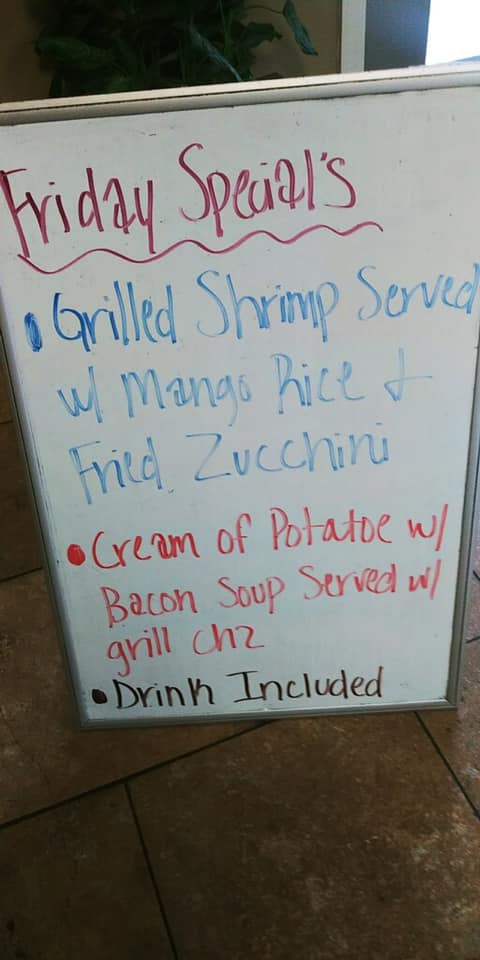 Friday Special's
• Grilled Shrimp Served
w/ Mango Rice &
Fried Zucchini
• Cream of Potatoe w/
Bacon Soup Served w/
grill chz
• Drink Included